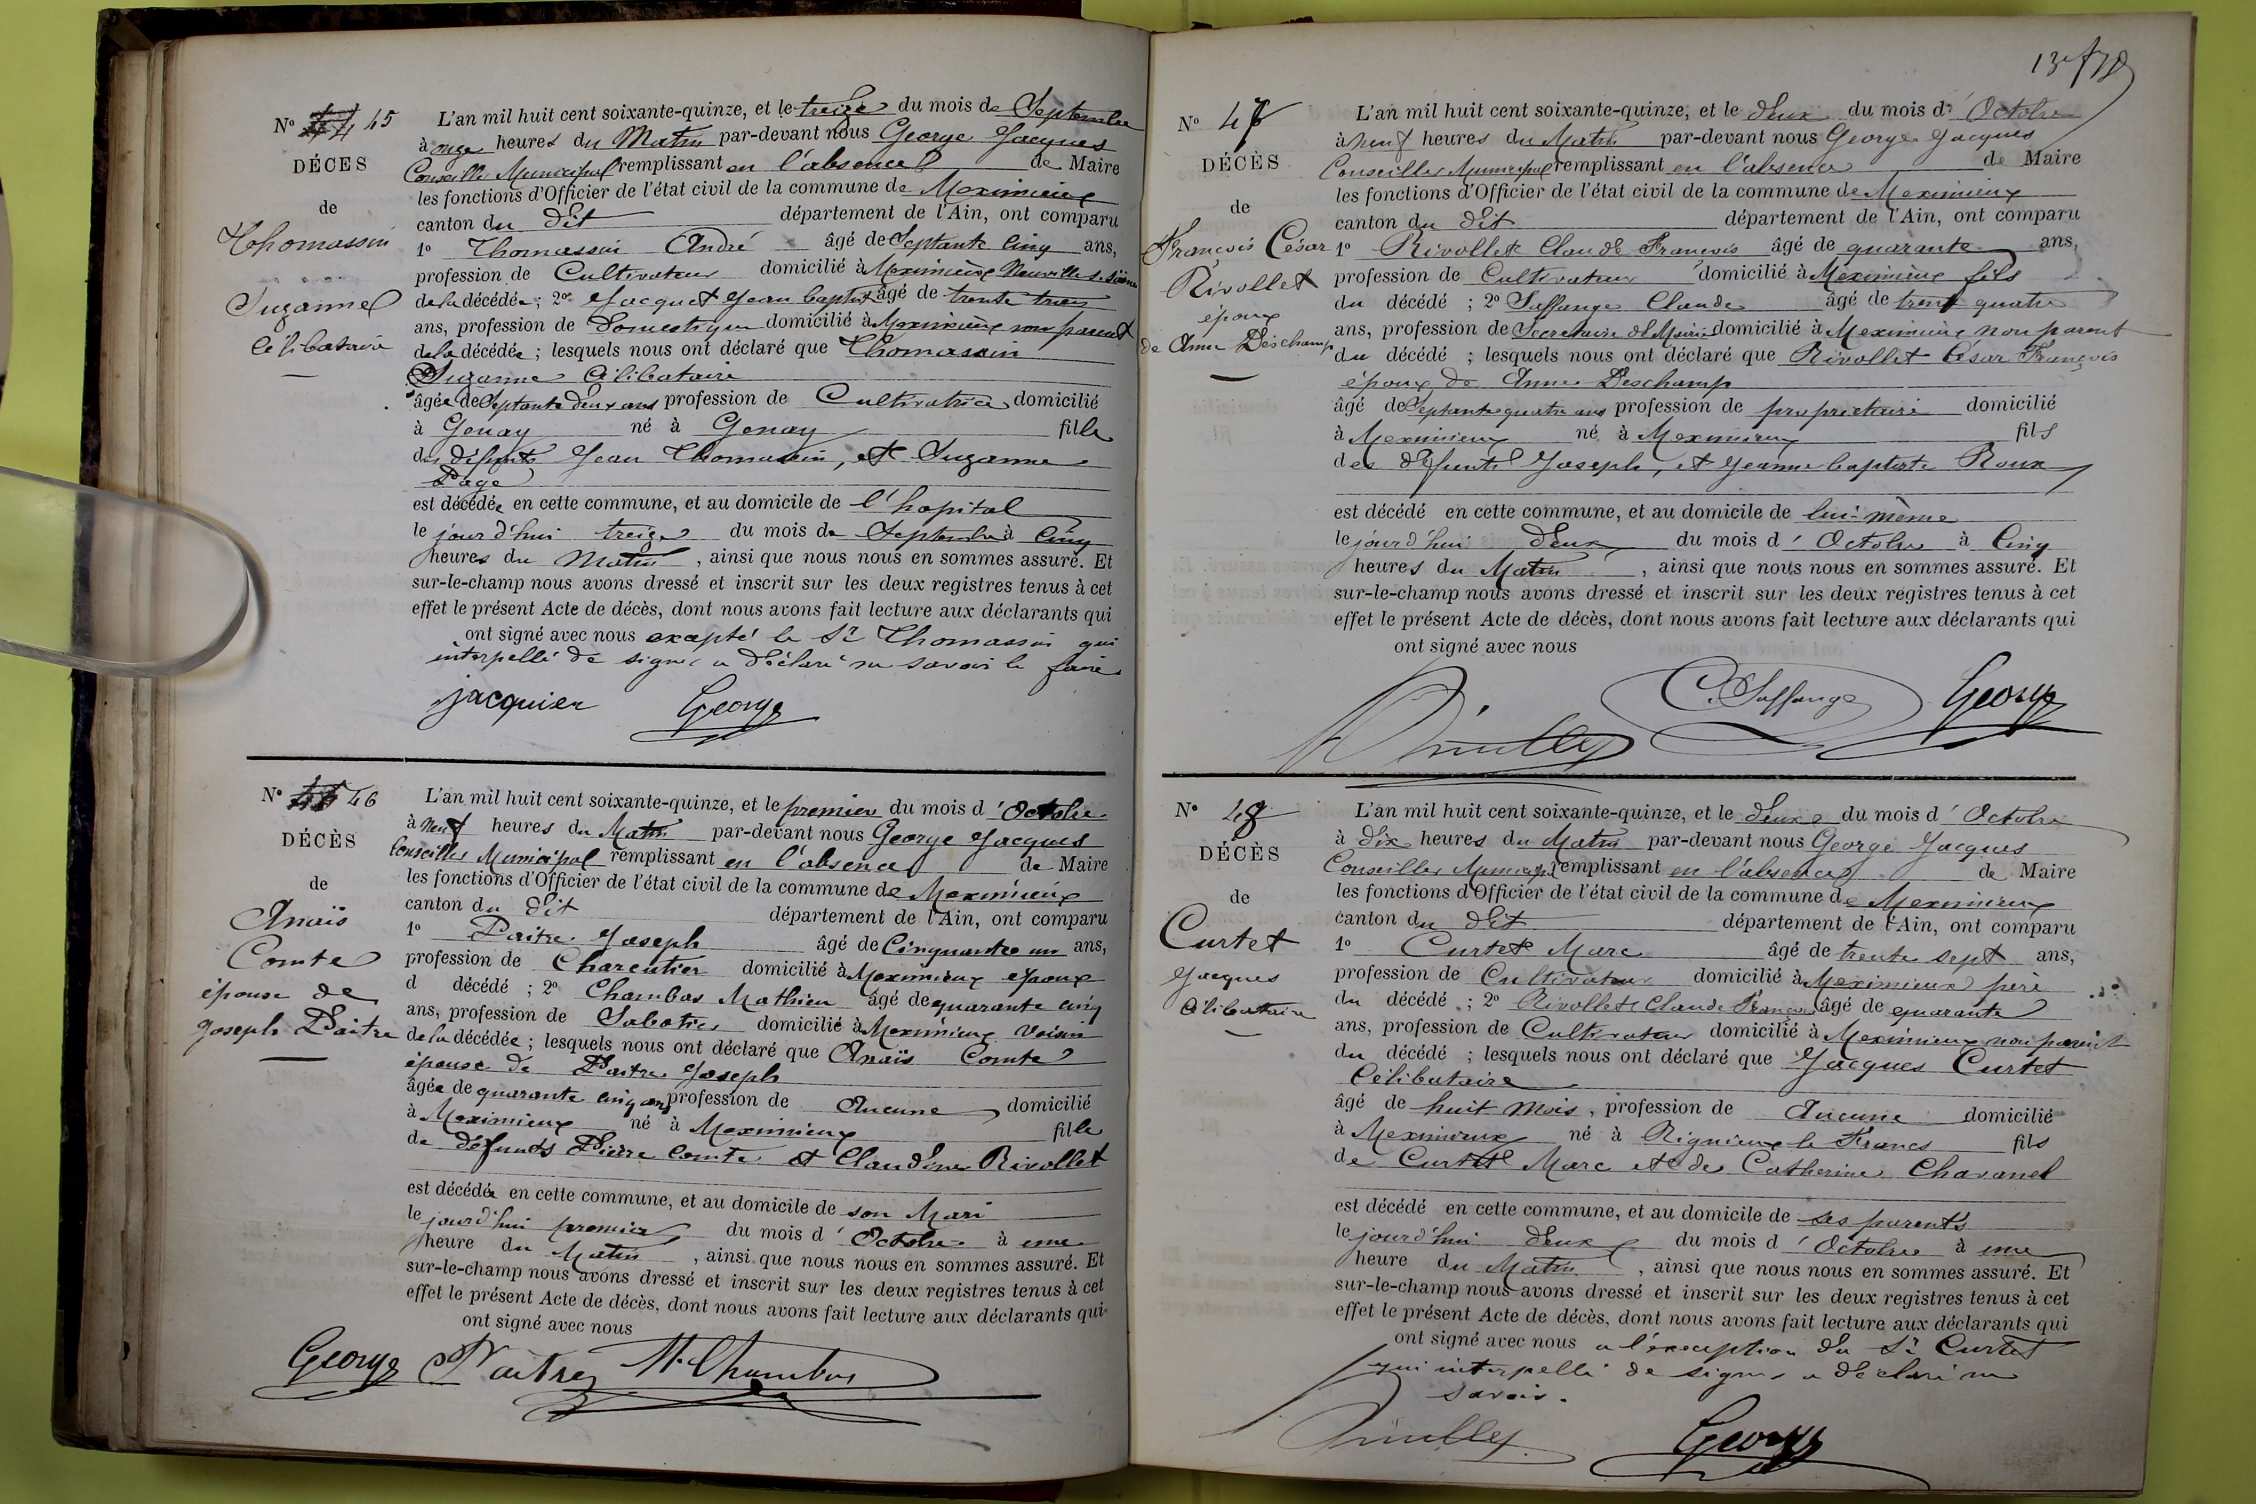 N° 45
DÉCES
de
Thomassin
Suzanne
célibataire
L'an mil huit cent soixante-quinze, et le treize du mois de Septembre
à onze heures du Matin par-devant nous George Jacques
Conseiller Municipal remplissant en l'absence de Maire
les fonctions d'Officier de l'état civil de la commune de Meximieux
canton du dit département de l'Ain, ont comparu
1° Thomassin André âgé de Septante Cinq ans,
profession de Cultivateur domicilié à
de la décédée; 2° Jacquet Jean baptiste âgé de trente trois
ans, profession de Domestique domicilié à Meximieux non parent
de la décédée; lesquels nous ont déclaré que Thomassin
Suzanne Célibataire
âgée de Septante deux ans profession de Cultivatrice domicilié
à Genay né à Genay fille
des défunts Jean Thomassin, et Suzanne
Page
est décédée en cette commune, et au domicile de l'hopital
le jourd'hui treize du mois de Septembre à Cinq
heures du Matin, ainsi que nous nous en sommes assuré. Et
sur-le-champ nous avons dressé et inscrit sur les deux registres tenus à cet
effet le présent Acte de décès, dont nous avons fait lecture aux déclarants qui
ont signé avec nous excepté le Sr Thomassin qui
interpellé de signer a déclaré ne savoir le faire
jacquier George
N° 46
DÉCÈS
de
Anaïs
Comte
épouse de
Joseph Paitre
L'an mil huit cent soixante-quinze, et le premier du mois d'Octobre
à neuf heures du Matin par-devant nous George Jacques
Conseiller Municipal remplissant en l'absence de Maire
les fonctions d'Officier de l'état civil de la commune de Meximieux
canton du dit département de l'Ain, ont comparu
1° Paitre Joseph âgé de Cinquante un ans,
profession de Charcutier domicilié à Meximieux époux
d décédé; 2° Chambas Mathieu âgé de quarante cinq
ans, profession de Sabotier domicilié à Meximieux Voisin
de la décédée; lesquels nous ont déclaré que Anaïs Comte
épouse de Paitre Joseph
âgée de quarante cinq ans profession de Aucune domicilié
à Meximieux né à Meximieux fille
de défunts Pierre Comte et Claudine Rivollet
est décédée en cette commune, et au domicile de son Mari
le jourd'hui premier du mois d'Octobre à une
heure du Matin, ainsi que nous nous en sommes assuré. Et
sur-le-champ nous avons dressé et inscrit sur les deux registres tenus à cet
effet le présent Acte de décès, dont nous avons fait lecture aux déclarants qui
ont signé avec nous
George Paitre M. Chambas
N° 47
DÉCÈS
de
François César
Rivollet
époux
de Anne Deschamp
L'an mil huit cent soixante-quinze, et le deux du mois d'Octobre
à neuf heures du Matin par-devant nous George Jacques
Conseiller Municipal remplissant en l'absence de Maire
les fonctions d'Officier de l'état civil de la commune de Meximieux
canton du dit département de l'Ain, ont comparu
1° Rivollet Claude François âgé de quarante ans,
profession de Cultivateur domicilié à Meximieux fils
du décédé; 2° Saffange Claude âgé de trente quatre
ans, profession de Secretaire de Mairie domicilié à Meximieux non parent
du décédé; lesquels nous ont déclaré que Rivollet César François
époux de Anne Deschamp
âgé de Septante quatre ans profession de propriétaire domicilié
à Meximieux né à Meximieux fils
des défunts Joseph, et Jeanne baptiste Roux
est décédé en cette commune, et au domicile de lui-même
le jourd'hui deux du mois d'Octobre à Cinq
heures du Matin, ainsi que nous nous en sommes assuré. Et
sur-le-champ nous avons dressé et inscrit sur les deux registres tenus à cet
effet le présent Acte de décès, dont nous avons fait lecture aux déclarants qui
ont signé avec nous
C. Saffange George
N° 48
DÉCÈS
de
Curtet
Jacques
Célibataire
L'an mil huit cent soixante-quinze, et le deux du mois d'Octobre
à dix heures du Matin par-devant nous George Jacques
Conseiller Municipal remplissant en l'absence de Maire
les fonctions d'Officier de l'état civil de la commune de Meximieux
canton du dit département de l'Ain, ont comparu
1° Curtet Marc âgé de trente sept ans,
profession de Cultivateur domicilié à Meximieux père
du décédé; 2° Rivollet Claude François âgé de quarante
ans, profession de Cultivateur domicilié à Meximieux non parent
du décédé; lesquels nous ont déclaré que Jacques Curtet
Célibataire
âgé de huit mois, profession de Aucune domicilié
à Meximieux né à Rignieux le Franc fils
de Curtet Marc et de Catherine Chavanel
est décédé en cette commune, et au domicile de ses parents
le jourd'hui deux du mois d'Octobre à une
heure du Matin, ainsi que nous nous en sommes assuré. Et
sur-le-champ nous avons dressé et inscrit sur les deux registres tenus à cet
effet le présent Acte de décès, dont nous avons fait lecture aux déclarants qui
ont signé avec nous a l'exception du Sr Curtet
qui interpellé de signer a déclaré ne
savoir.
George